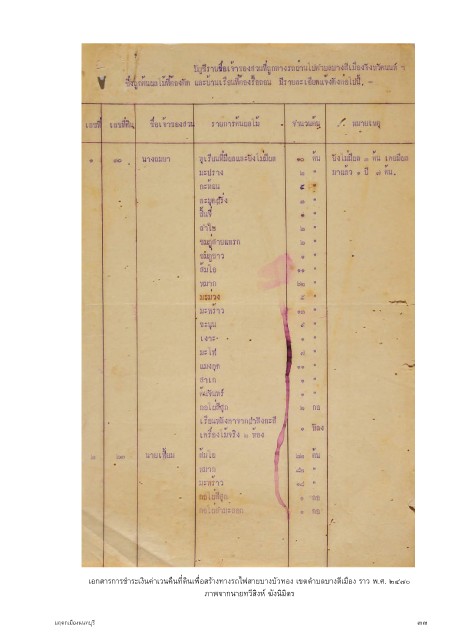 บัญชีรายชื่อเจ้าของสวนที่ถูกทางรถผ่านในตำบลบางตีเมืองจังหวัดนนท์ ฯ
ซึ่งถูกต้นผลไม้ที่ต้องตัด และบ้านเรือนที่ต้องรื้อถอน มีรายละเอียดแจ้งดังต่อไปนี้. -
เลขที่ เลขที่ดิน ชื่อเจ้าของสวน รายการต้นผลไม้ จำนวนต้น หมายเหตุ
๑ ๑๐ ทุเรียนที่มีผลและยังไม่มีผล ๑๐ ต้น ยังไม่มีผล ๓ ต้น เคยมีผล
มะปราง ๒ " มาแล้ว ๑ ปี ๗ ต้น.
กะท้อน ๕ "
ละมุดฝรั่ง ๑ "
ลิ้นจี่ ๑ "
ลำไย ๒ "
ชมภู่สาแหรก ๒ "
ชมภู่ขาว ๑ "
ส้มโอ ๑๑ "
หมาก ๒๒ "
มะม่วง ๕ "
มะพร้าว ๑๓ "
ขะนุน ๕ "
เงาะ ๑ "
มะไฟ ๗ "
มังคุด ๑๑ "
สาเก ๑ "
ต้นจันทร์ ๑ "
กอไผ่สีสุก ๒ กอ
เรือนหลังคาจากฝาขัดแตะ
เครื่องไม้จริง ๒ ห้อง ๑ ห้อง
๒ นายเทียม ส้มโอ ต้น
หมาก "
มะพร้าว "
กอไผ่สีสุก ๑ กอ
๑ กอ
เอกสารการชำระเงินค่าเวนคืนที่ดินเพื่อสร้างทางรถไฟสายบางบัวทอง เขตตำบลบางตีเมือง ราว พ.ศ. ๒๔๗๐
ภาพจากนายทวีสิงห์ ฆังนิมิตร
มรดกเมืองนนทบุรี ๓๗